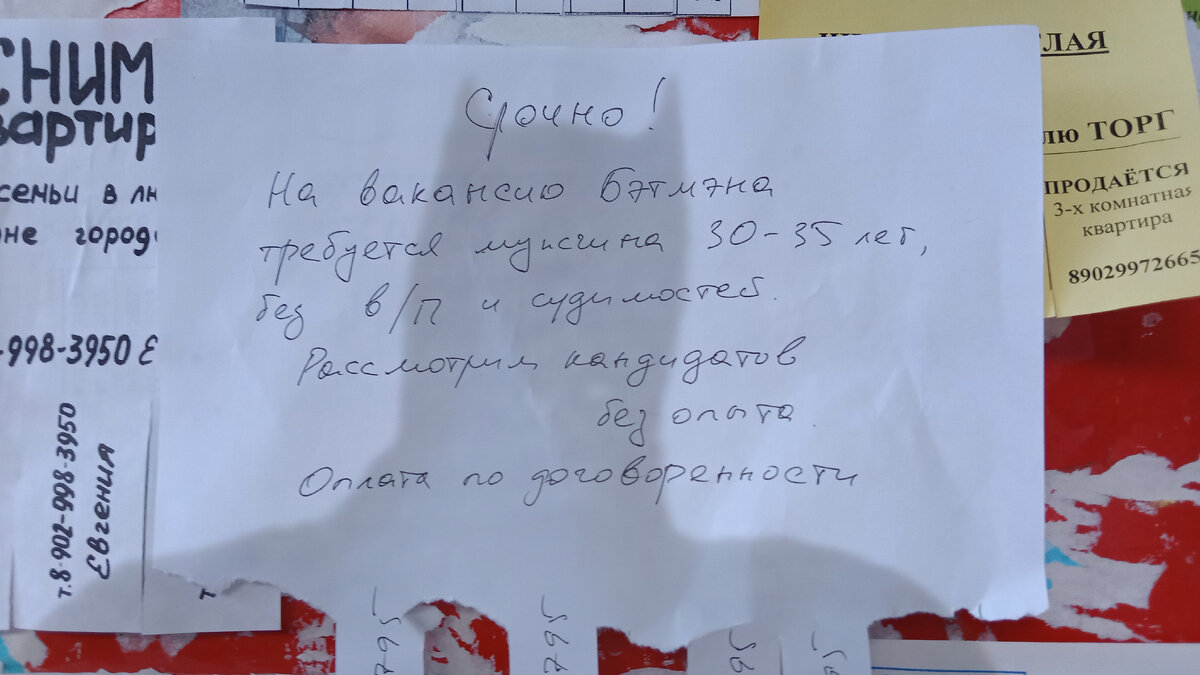 Срочно!
На вакансию Бэтмэна
требуется мужчина 30-35 лет,
без в/п и судимостей.
Рассмотрим кандидатов
без опыта.
Оплата по договоренности
СНИМ
вартир
семьи в лю
не город
-998-3950 Е
т.8-902-998-3950
Евгения
т
ЛАЯ
лю ТОРГ
ПРОДАЁТСЯ
3-х комнатная
квартира
89029972665
795
795